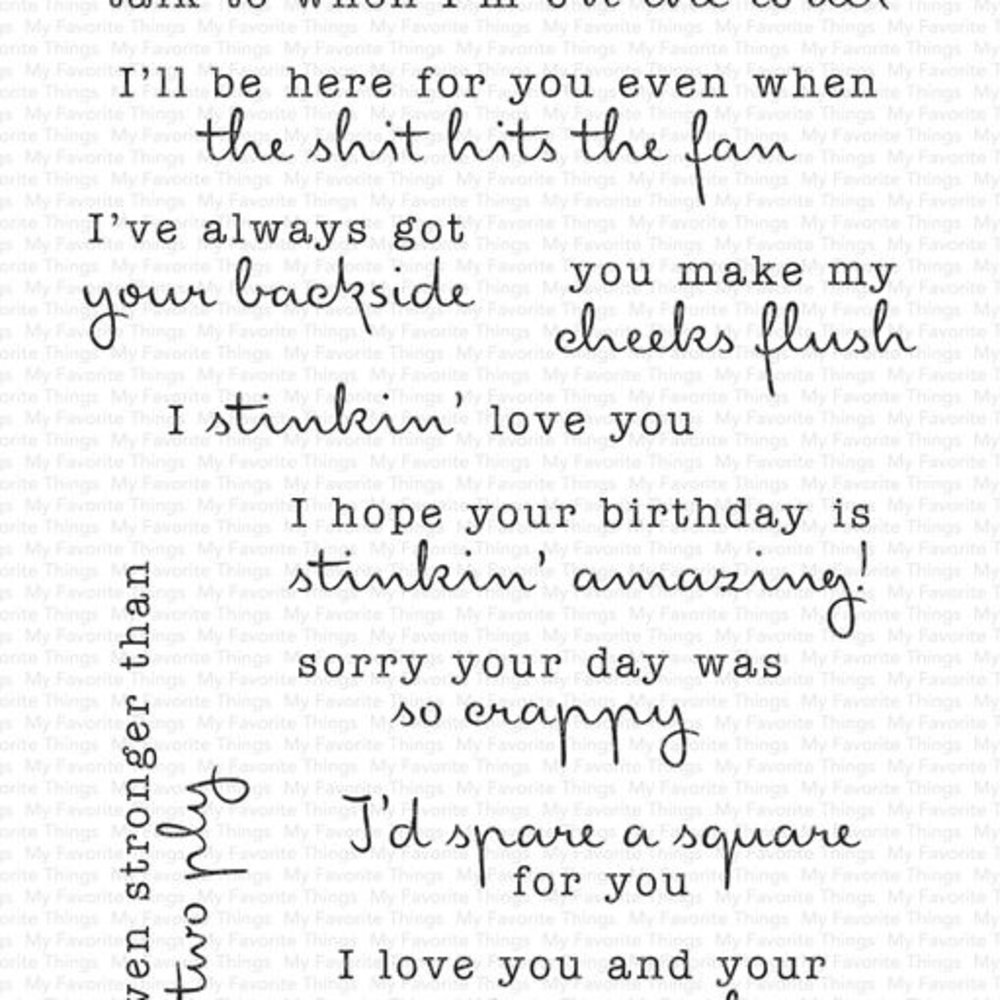 talk to when I'm
I'll be here for you even when
the shit hits the fan
I've always got
your backside
you make my
cheeks flush
I stinkin' love you
I hope your birthday is
stinkin' amazing!
sorry your day was
so crappy
I'd spare a square
for you
I love you and your
stronger than
two ply
My Favorite Things